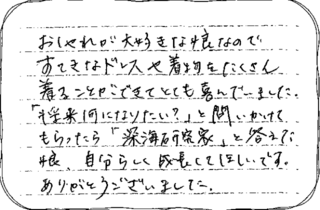 おしゃれが大好きな娘なので
すてきなドレスや着物をたくさん
着ることができてとても喜んでいました。
「将来何になりたい?」と問いかけて
もらったら「深海研究家」と答えた
娘、自分らしく成長してほしいです。
ありがとうございました。